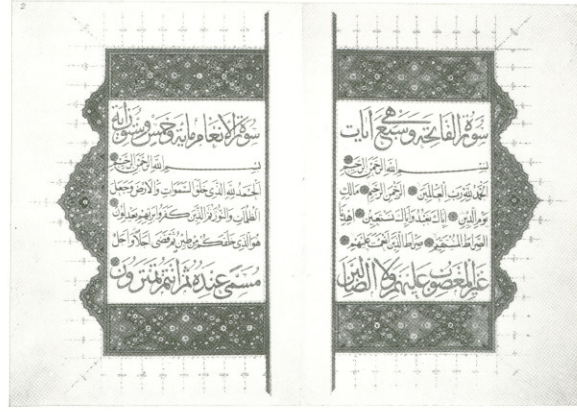 2
سورة الفاتحة وهي سبع ايات
بسم الله الرحمن الرحيم
الحمد لله رب العالمين الرحمن الرحيم مالك
يوم الدين اياك نعبد واياك نستعين اهدنا
الصراط المستقيم صراط الذين انعمت عليهم
غير المغضوب عليهم ولا الضالين
سورة الانعام ماية وخمس وستون آية
بسم الله الرحمن الرحيم
الحمد لله الذي خلق السموات والارض وجعل
الظلمات والنور ثم الذين كفروا بربهم يعدلون
هو الذي خلقكم من طين ثم قضى اجلا واجل
مسمى عنده ثم انتم تمترون